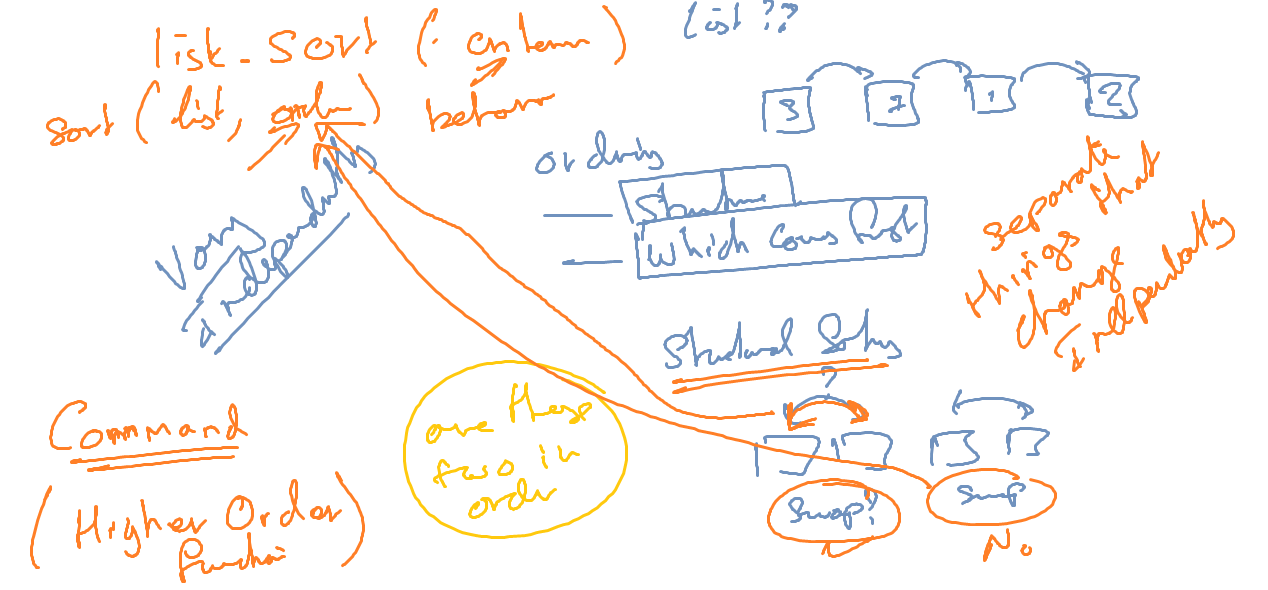 list ??
list-sort (· criteria)
sort (list, order)
behavior
3 7 1 2
ordering
Structure
Which comes first
Vary
Independently
separate
things that
change
Independently
Structural Sorting
?
Command
(Higher Order
function)
are these
two in
order
Swap?
Swap
No